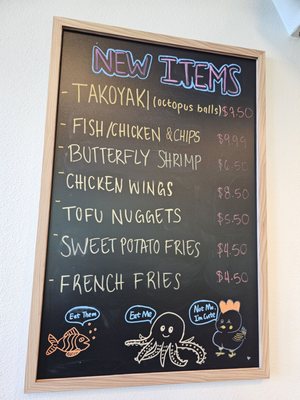 NEW ITEMS
- TAKOYAKI (octopus balls) $7.50
- FISH/CHICKEN & CHIPS $9.99
- BUTTERFLY SHRIMP $6.50
- CHICKEN WINGS $8.50
- TOFU NUGGETS $5.50
- SWEET POTATO FRIES $4.50
- FRENCH FRIES $4.50
Eat Them
Eat Me
Not Me,
I'm Cute